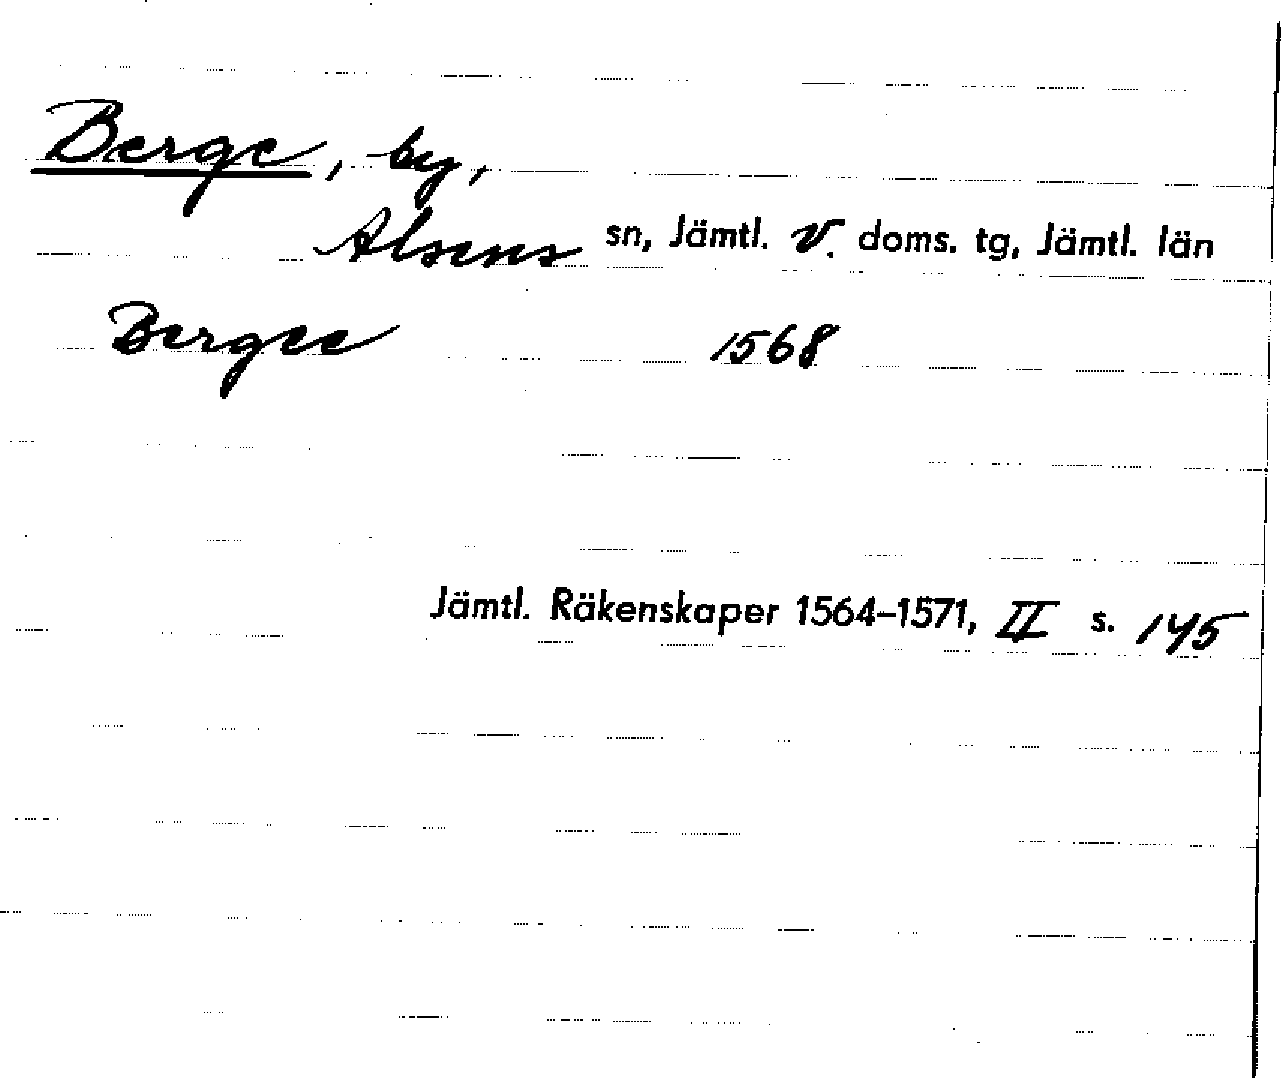 Berge, by,
Alsens sn, Jämtl. v. doms. tg, Jämtl. län
Bergee 1568
Jämtl. Räkenskaper 1564–1571, II s. 145